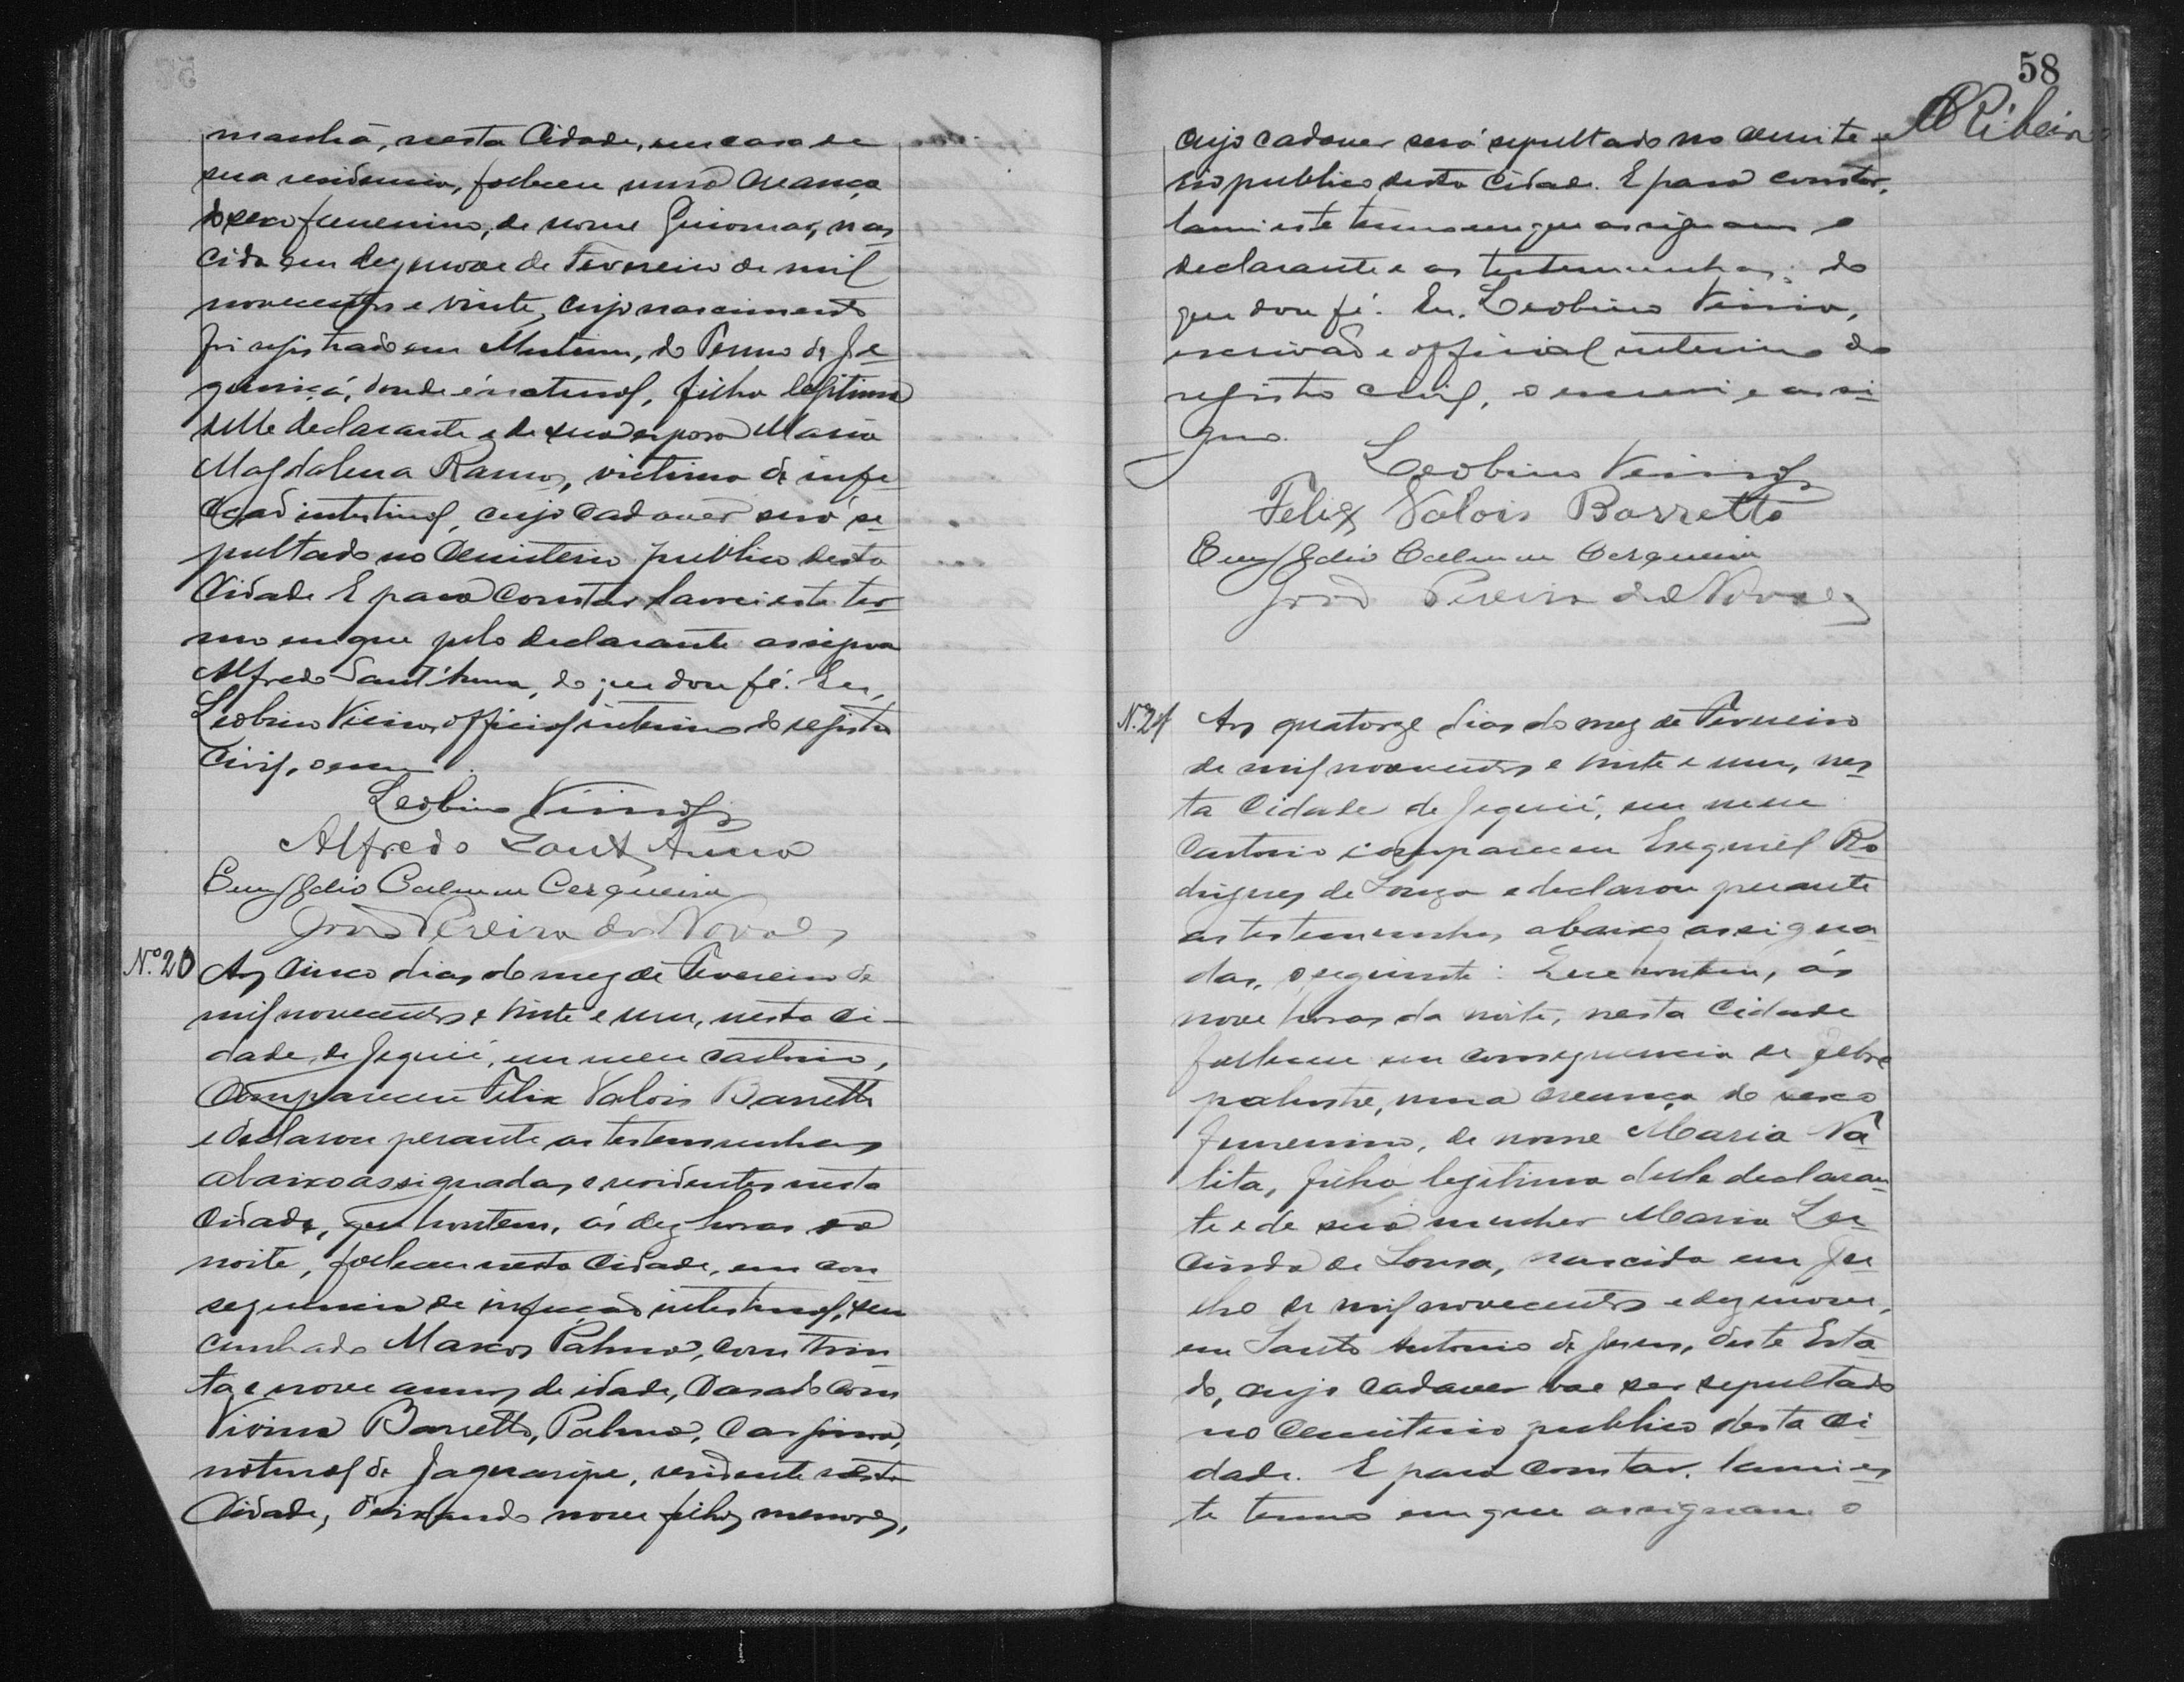 manhã, nesta Cidade, em casa de
sua residencia, falleceu uma creança
do sexo femenino, de nome Guiomar, nas
cida em dezenove de Fevereiro de mil
novecentos e vinte, cujo nascimento
foi registrado em Mutum, do Termo de Je
quiriçá, donde é natural, filha legitima
delle declarante e de sua esposa Maria
Magdalena Ramos, victima de infe
cção intestinal, cujo cadaver será se
pultado no Cemiterio publico desta
Cidade E para constar lavrei este ter
mo em que pelo declarante assigna
Alfredo Sant'Anna, do que dou fé. Eu,
Leobino Vieira, official interino do registro
Civil, o
Leobino
Alfredo Sant'Anna
Emygdio Calmon Cerqueira
José Pereira de Novaes
N.º 20 Aos cinco dias do mez de Fevereiro de
mil novecentos e vinte e um, nesta Ci-
dade de Jequié, em meu cartorio,
Compareceu Felix Valois Barretto
e declarou perante as testemunhas
abaixo assignadas e residentes nesta
Cidade, que hontem, ás dez horas da
noite, falleceu nesta Cidade, em con
sequencia de infecção intestinal, seu
cunhado Marcos Palma, com trin
ta e nove annos de idade, Casado com
Barretto Palma, Carpina,
natural de Jaguaripe, residente nesta
Cidade, deixando nove filhos menores,
58
ARibeiro
cujo cadaver será sepultado no cemite
rio publico desta Cidade. E para constar,
lavrei este termo em que assignam o
declarante e as testemunhas; do
que dou fé. Eu, Leobino Vieira,
escrivão e official interino do
registro civil, o escrevi e assi
gno.
Leobino
Felix Valois Barretto
Emygdio Calmon Cerqueira
José Pereira de Novaes
N.º 21 Aos quatorze dias do mez de Fevereiro
de mil novecentos e vinte e um, nes
ta Cidade de Jequié, em meu
Cartorio compareceu Ezequiel Ro
drigues de Souza e declarou perante
as testemunhas abaixo assigna
das, o seguinte: Que hontem, ás
nove horas da noite, nesta Cidade
falleceu em consequencia de febre
palustre, uma creança do sexo
femenino, de nome Maria Na
lita, filha legitima deste declaran
te e de sua mulher Maria Lu
cinda de Sousa, nascida em Ju
lho de mil novecentos e dezenove,
em Santo Antonio de Jesus, deste Esta
do, cujo cadaver vae ser sepultado
no Cemiterio publico desta Ci
dade. E para constar, lavrei es
te termo em que assignam o